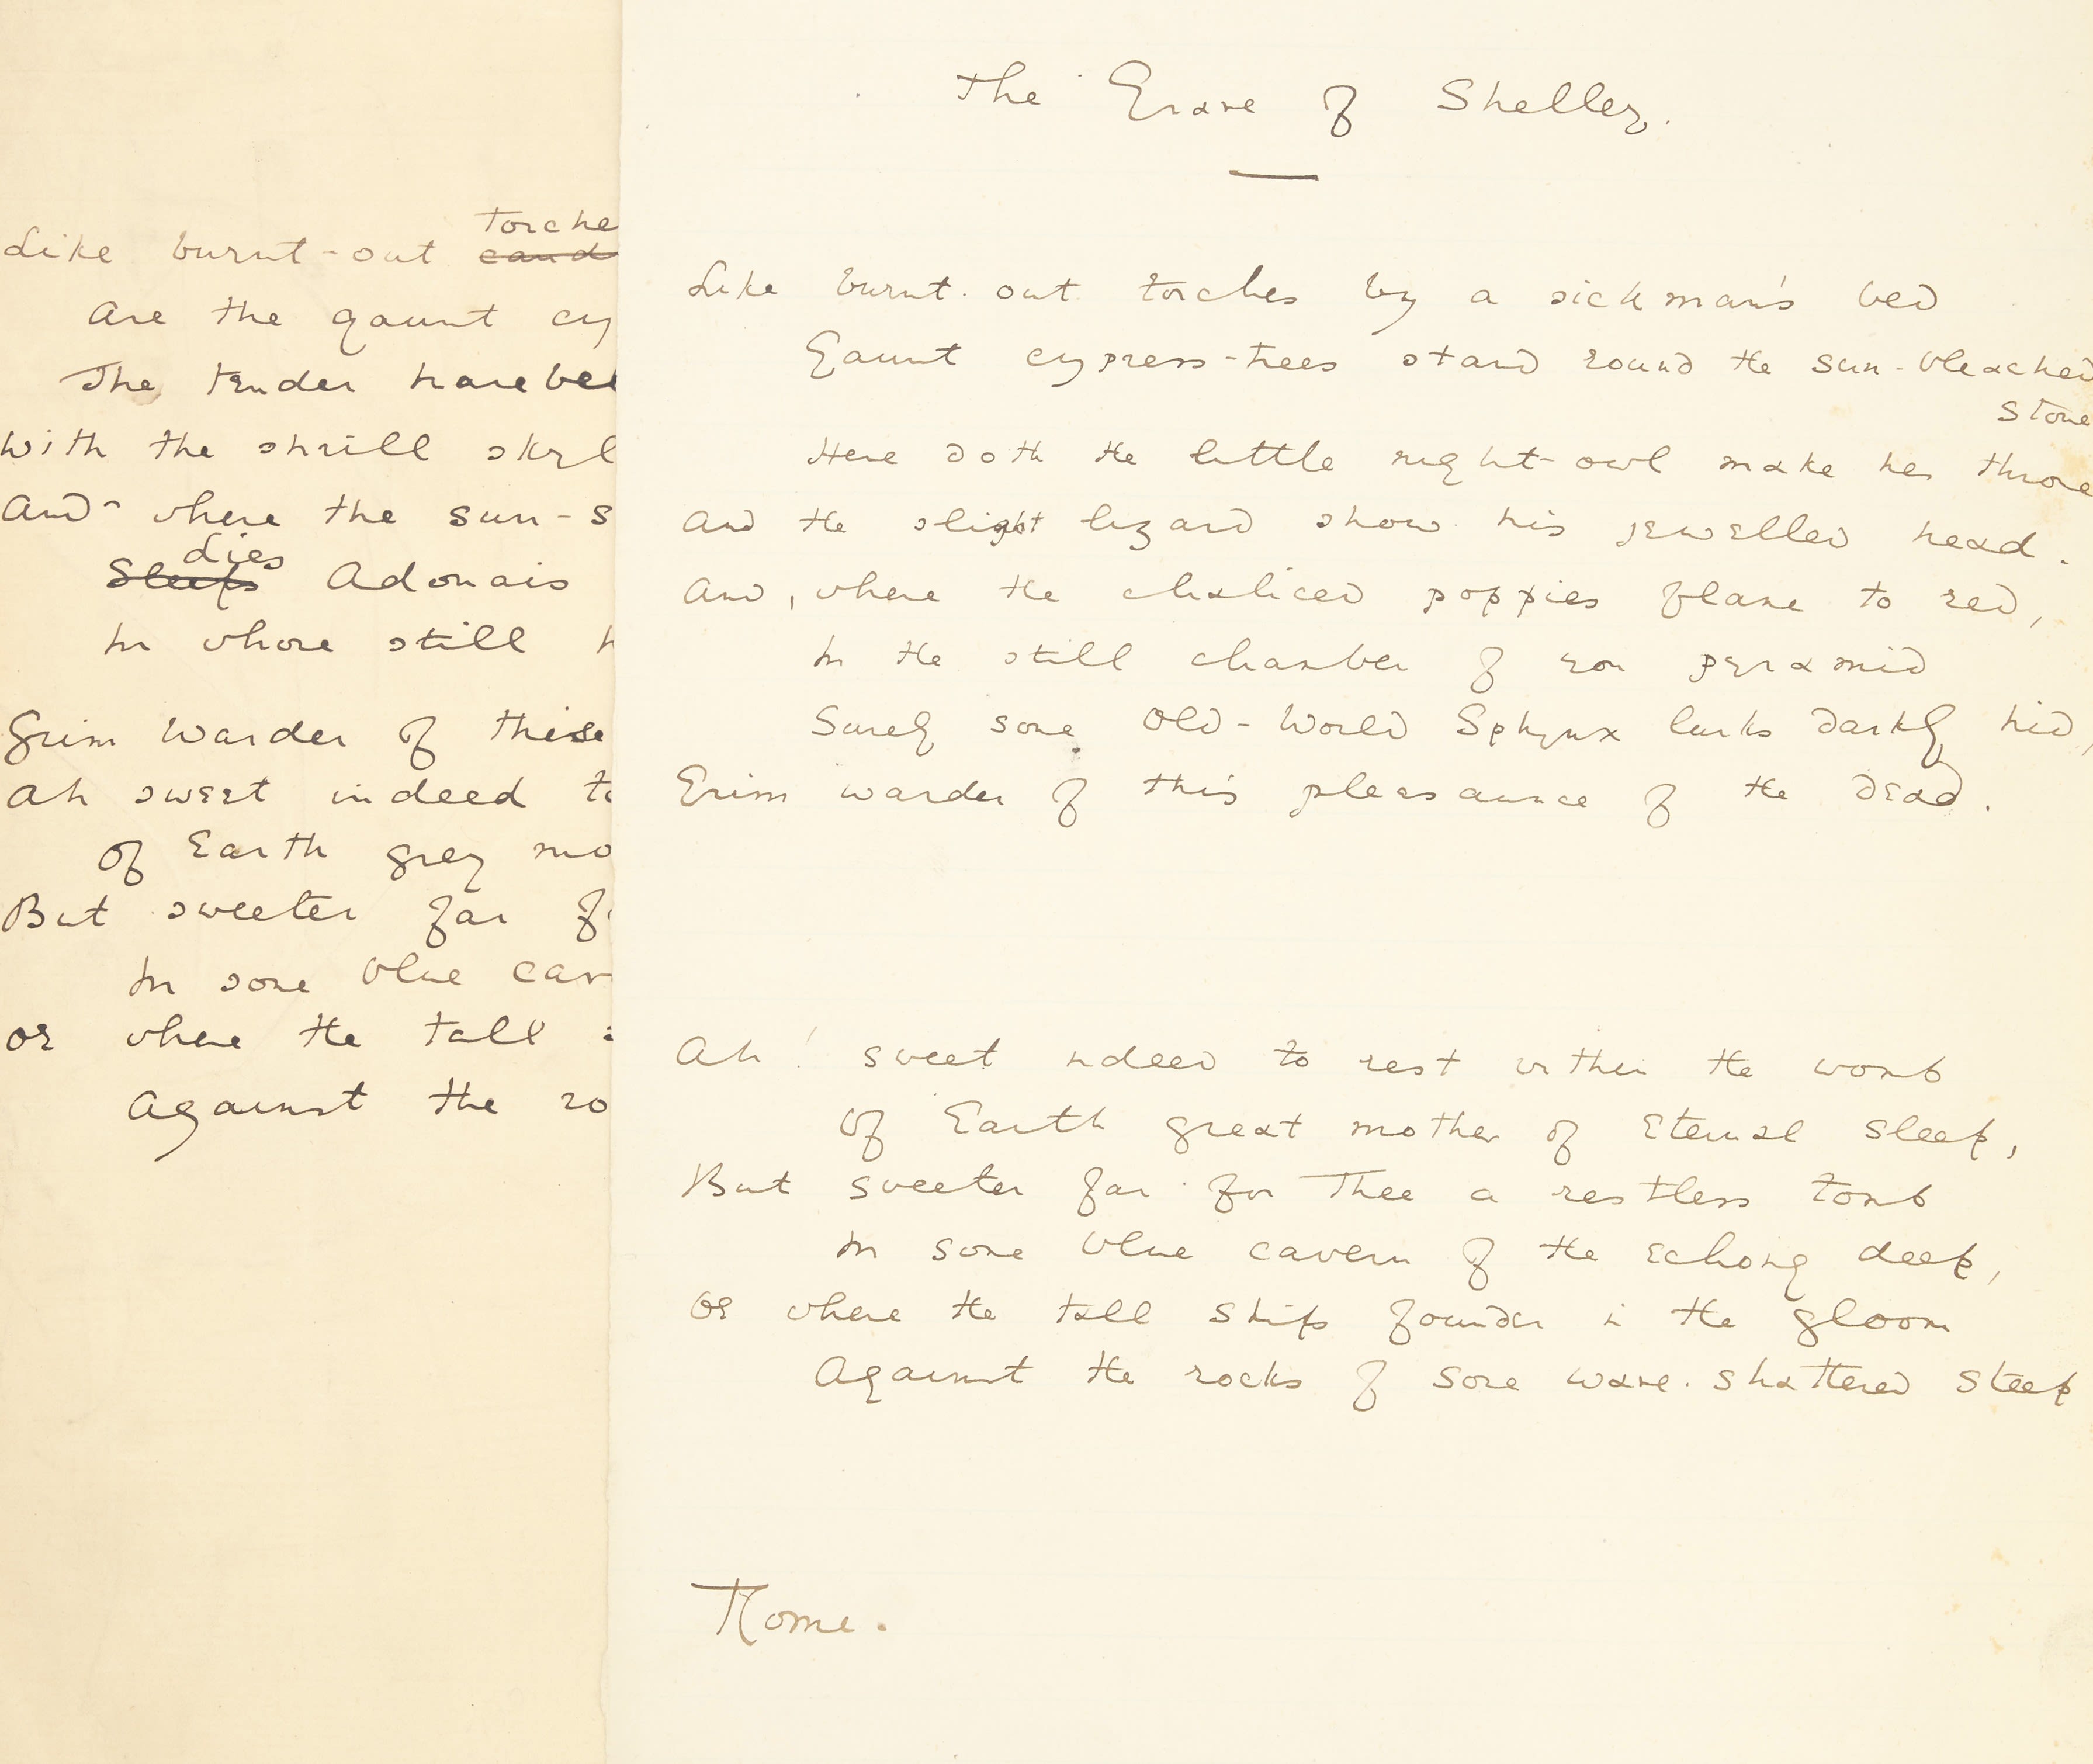 torche
Like burnt-out cand
are the gaunt cy
The tender harebel
With the shrill skyl
And where the sun-s
dies
Sleeps Adonais
In whose still h
Grim Warder of this
Ah sweet indeed to
Of Earth grey mo
But sweeter far f
In some blue cav
Or where the tall
Against the ro
The Grave of Shelley.
Like burnt-out torches by a sick man's bed
Gaunt cypress-trees stand round the sun-bleached
stone
Here doth the little night-owl make her throne
And the slight lizard show his jewelled head.
And, where the chaliced poppies flame to red,
In the still chamber of yon pyramid
Surely some Old-World Sphynx lurks darkly hid,
Grim warder of this pleasaunce of the dead.
Ah! sweet indeed to rest within the womb
Of Earth great mother of Eternal sleep,
But sweeter far for Thee a restless tomb
In some blue cavern of the echong deep,
Or where the tall ships founder in the gloom
Against the rocks of some wave-shattered steep
Rome.